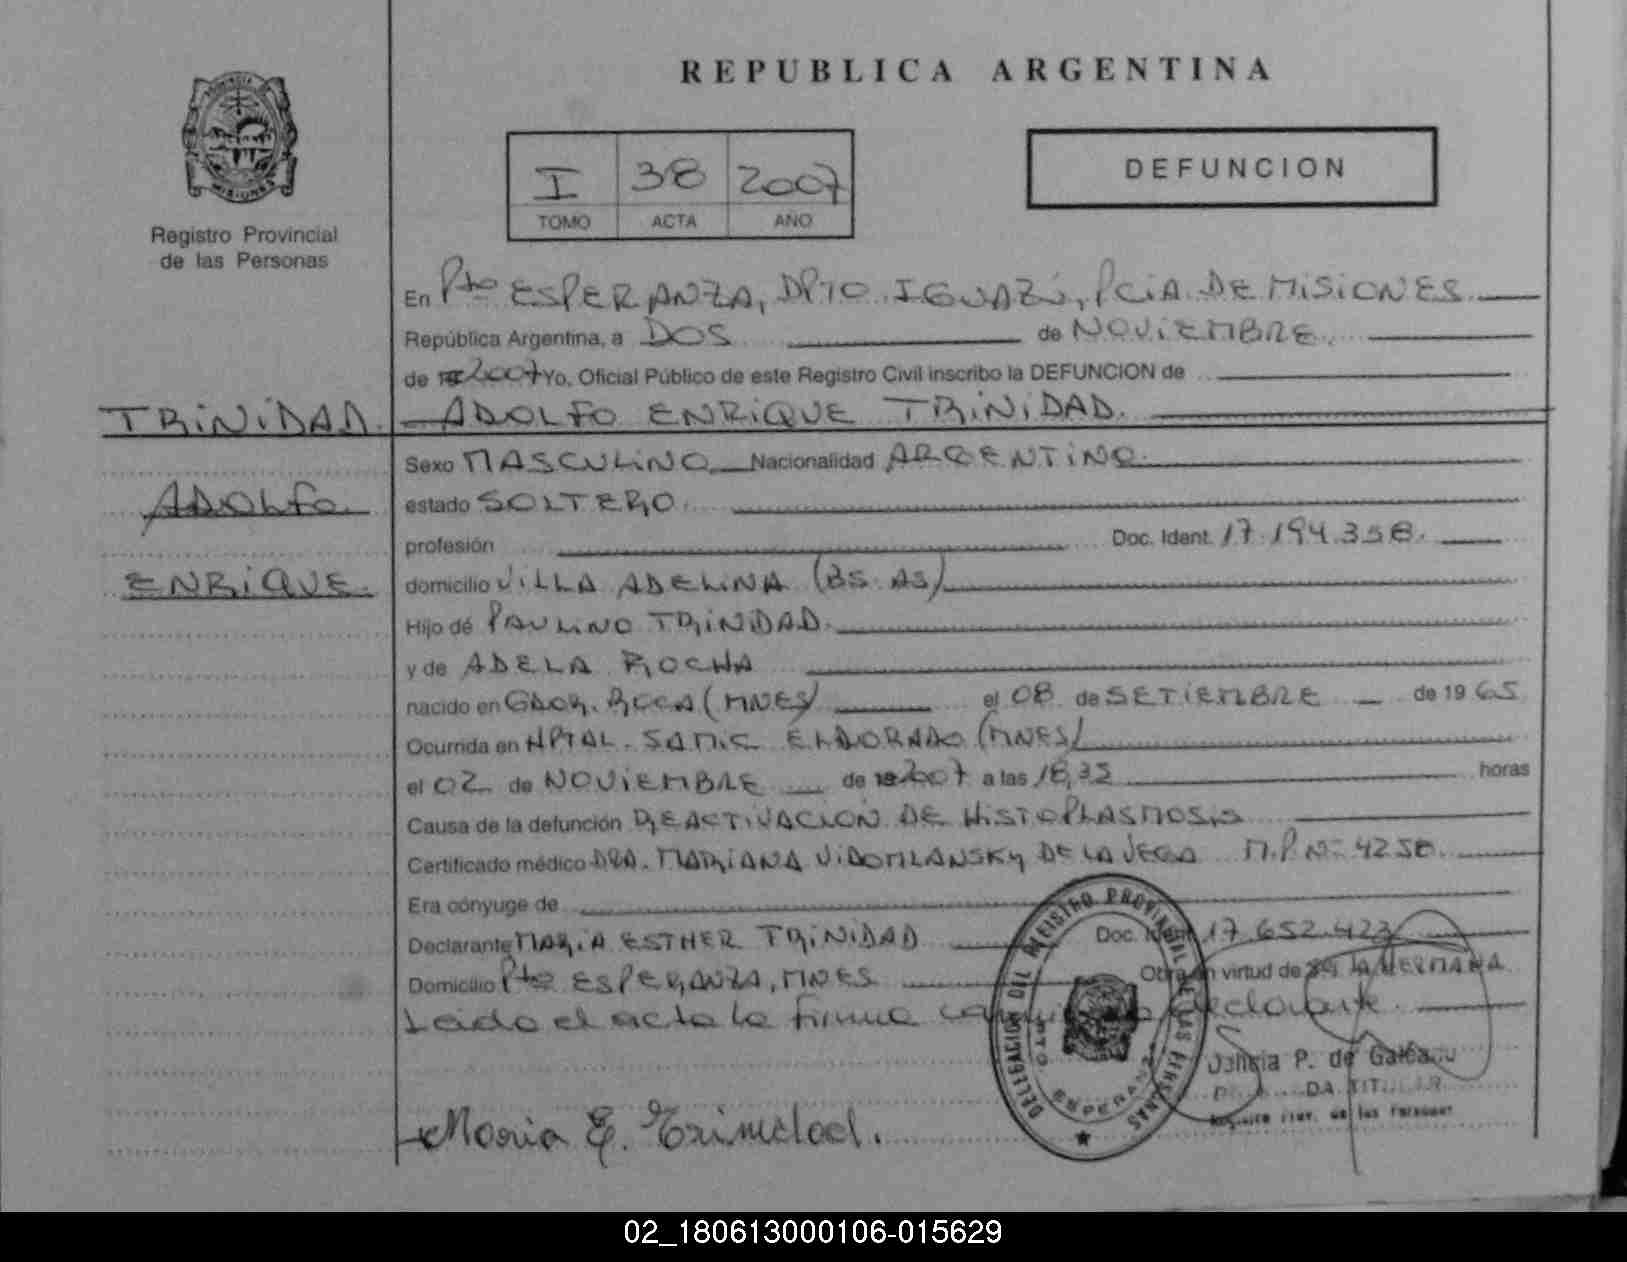 REPUBLICA ARGENTINA
PROVINCIA
MISIONES
Registro Provincial
de las Personas
I 38 2007
TOMO ACTA AÑO
DEFUNCION
En Pto ESPERANZA, DPTO. IGUAZÚ, PCIA. DE MISIONES
República Argentina, a DOS de NOVIEMBRE.
de 2007 Yo, Oficial Público de este Registro Civil inscribo la DEFUNCION de
TRINIDAD. ADOLFO ENRIQUE TRINIDAD.
Sexo MASCULINO Nacionalidad ARGENTINO.
ADOLFO estado SOLTERO.
profesión Doc. Ident. 17.194.358.
ENRIQUE. domicilio VILLA ADELINA (BS. AS)
Hijo de PAULINO TRINIDAD.
y de ADELA ROCHA
nacido en GDOR. ROCA (MNES) el 08 de SETIEMBRE de 1965
Ocurrida en HPTAL. SAMIC ELDORADO (MNES)
el 02 de NOVIEMBRE de 2007 a las horas
Causa de la defunción REACTIVACION DE HISTOPLASMOSIS
Certificado médico DRA. MARIANA DE LA VEGA M.P. Nº 4258.
Era cónyuge de
Declarante MARIA ESTHER TRINIDAD Doc. Ident. 17.652.423
Domicilio Pto ESPERANZA, MNES Obra en virtud de LA HERMANA
Leido el acta la firma declarante.
DELEGACION DEL REGISTRO PROVINCIAL DE LAS PERSONAS
PTO ESPERANZA
P. de Galeano
DELEGADA TITULAR
de las Personas
Maria E. Trinidad.
02_180613000106-015629